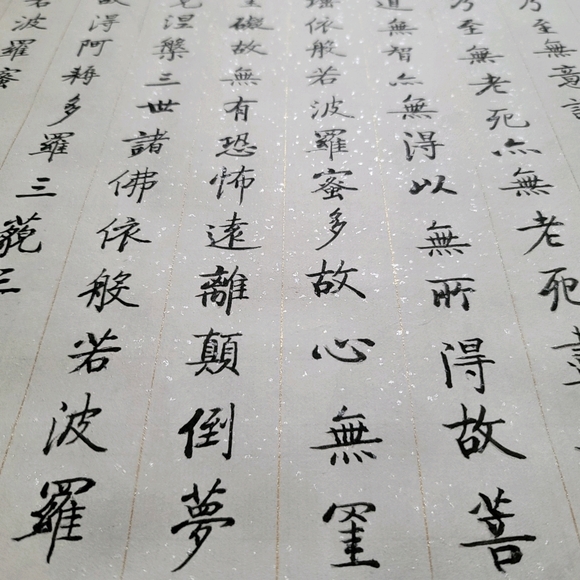 乃至無意識
乃至無老死亦無老死盡
道無智亦無得以無所得故菩
依般若波羅蜜多故心無罣
礙故無有恐怖遠離顛倒夢
涅槃三世諸佛依般若波羅
故得阿耨多羅三藐三
若波羅蜜